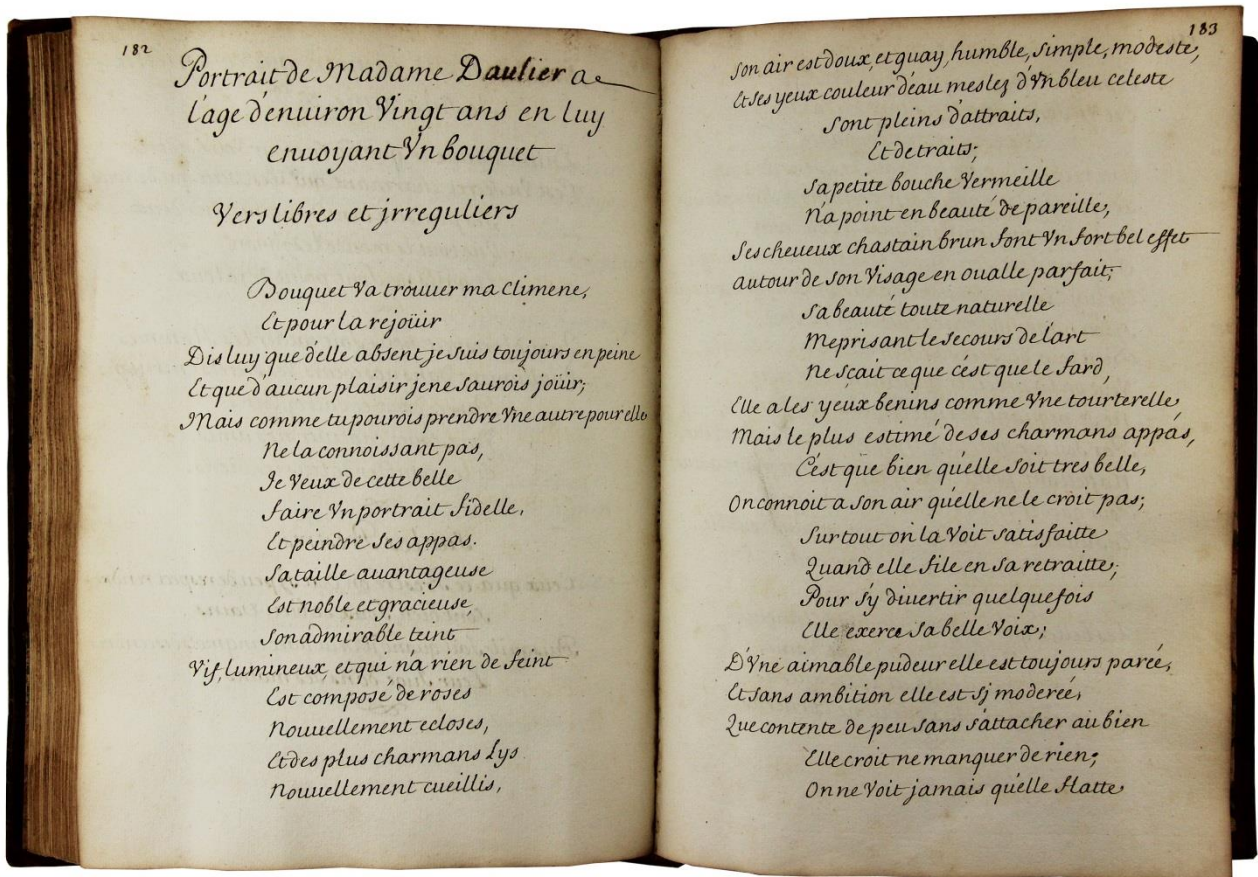 182
Portrait de Madame Daulier a
l'age d'enuiron Vingt ans en luy
enuoyant Vn bouquet
Vers libres et jrreguliers
Bouquet Va trouuer ma Climene,
Et pour la rejoüir
Dis luy que d'elle absent je suis toujours en peine
Et que d'aucun plaisir je ne saurois joüir;
Mais comme tu pourois prendre Vne autre pour elle
Ne la connoissant pas,
Je Veux de cette belle
faire Vn portrait fidelle,
Et peindre ses appas.
Sa taille auantageuse
Est noble et gracieuse,
Son admirable teint
Vif, lumineux, et qui n'a rien de feint
Est composé de roses
Nouuellement ecloses,
Et des plus charmans Lys
Nouuellement cueillis,
183
Son air est doux, et guay, humble, simple, modeste,
Et ses yeux couleur d'eau meslez d'Vn bleu celeste
Sont pleins d'attraits,
Et de traits;
Sa petite bouche Vermeille
N'a point en beauté de pareille,
Ses cheueux chastain brun font Vn fort bel effet
autour de son Visage en oualle parfait;
Sa beauté toute naturelle
Meprisant le secours de l'art
Ne sçait ce que c'est que le fard,
Elle a les yeux benins comme Vne tourterelle,
Mais le plus estimé de ses charmans appas,
C'est que bien qu'elle soit tres belle,
On connoit a son air qu'elle ne le croit pas;
Sur tout on la Voit satisfaitte
Quand elle file en sa retraitte;
Pour s'y diuertir quelquefois
Elle exerce sa belle Voix;
D'Vne aimable pudeur elle est toujours parée,
Et sans ambition elle est sj moderée,
Que contente de peu sans s'attacher au bien
Elle croit ne manquer de rien;
On ne Voit jamais qu'elle flatte